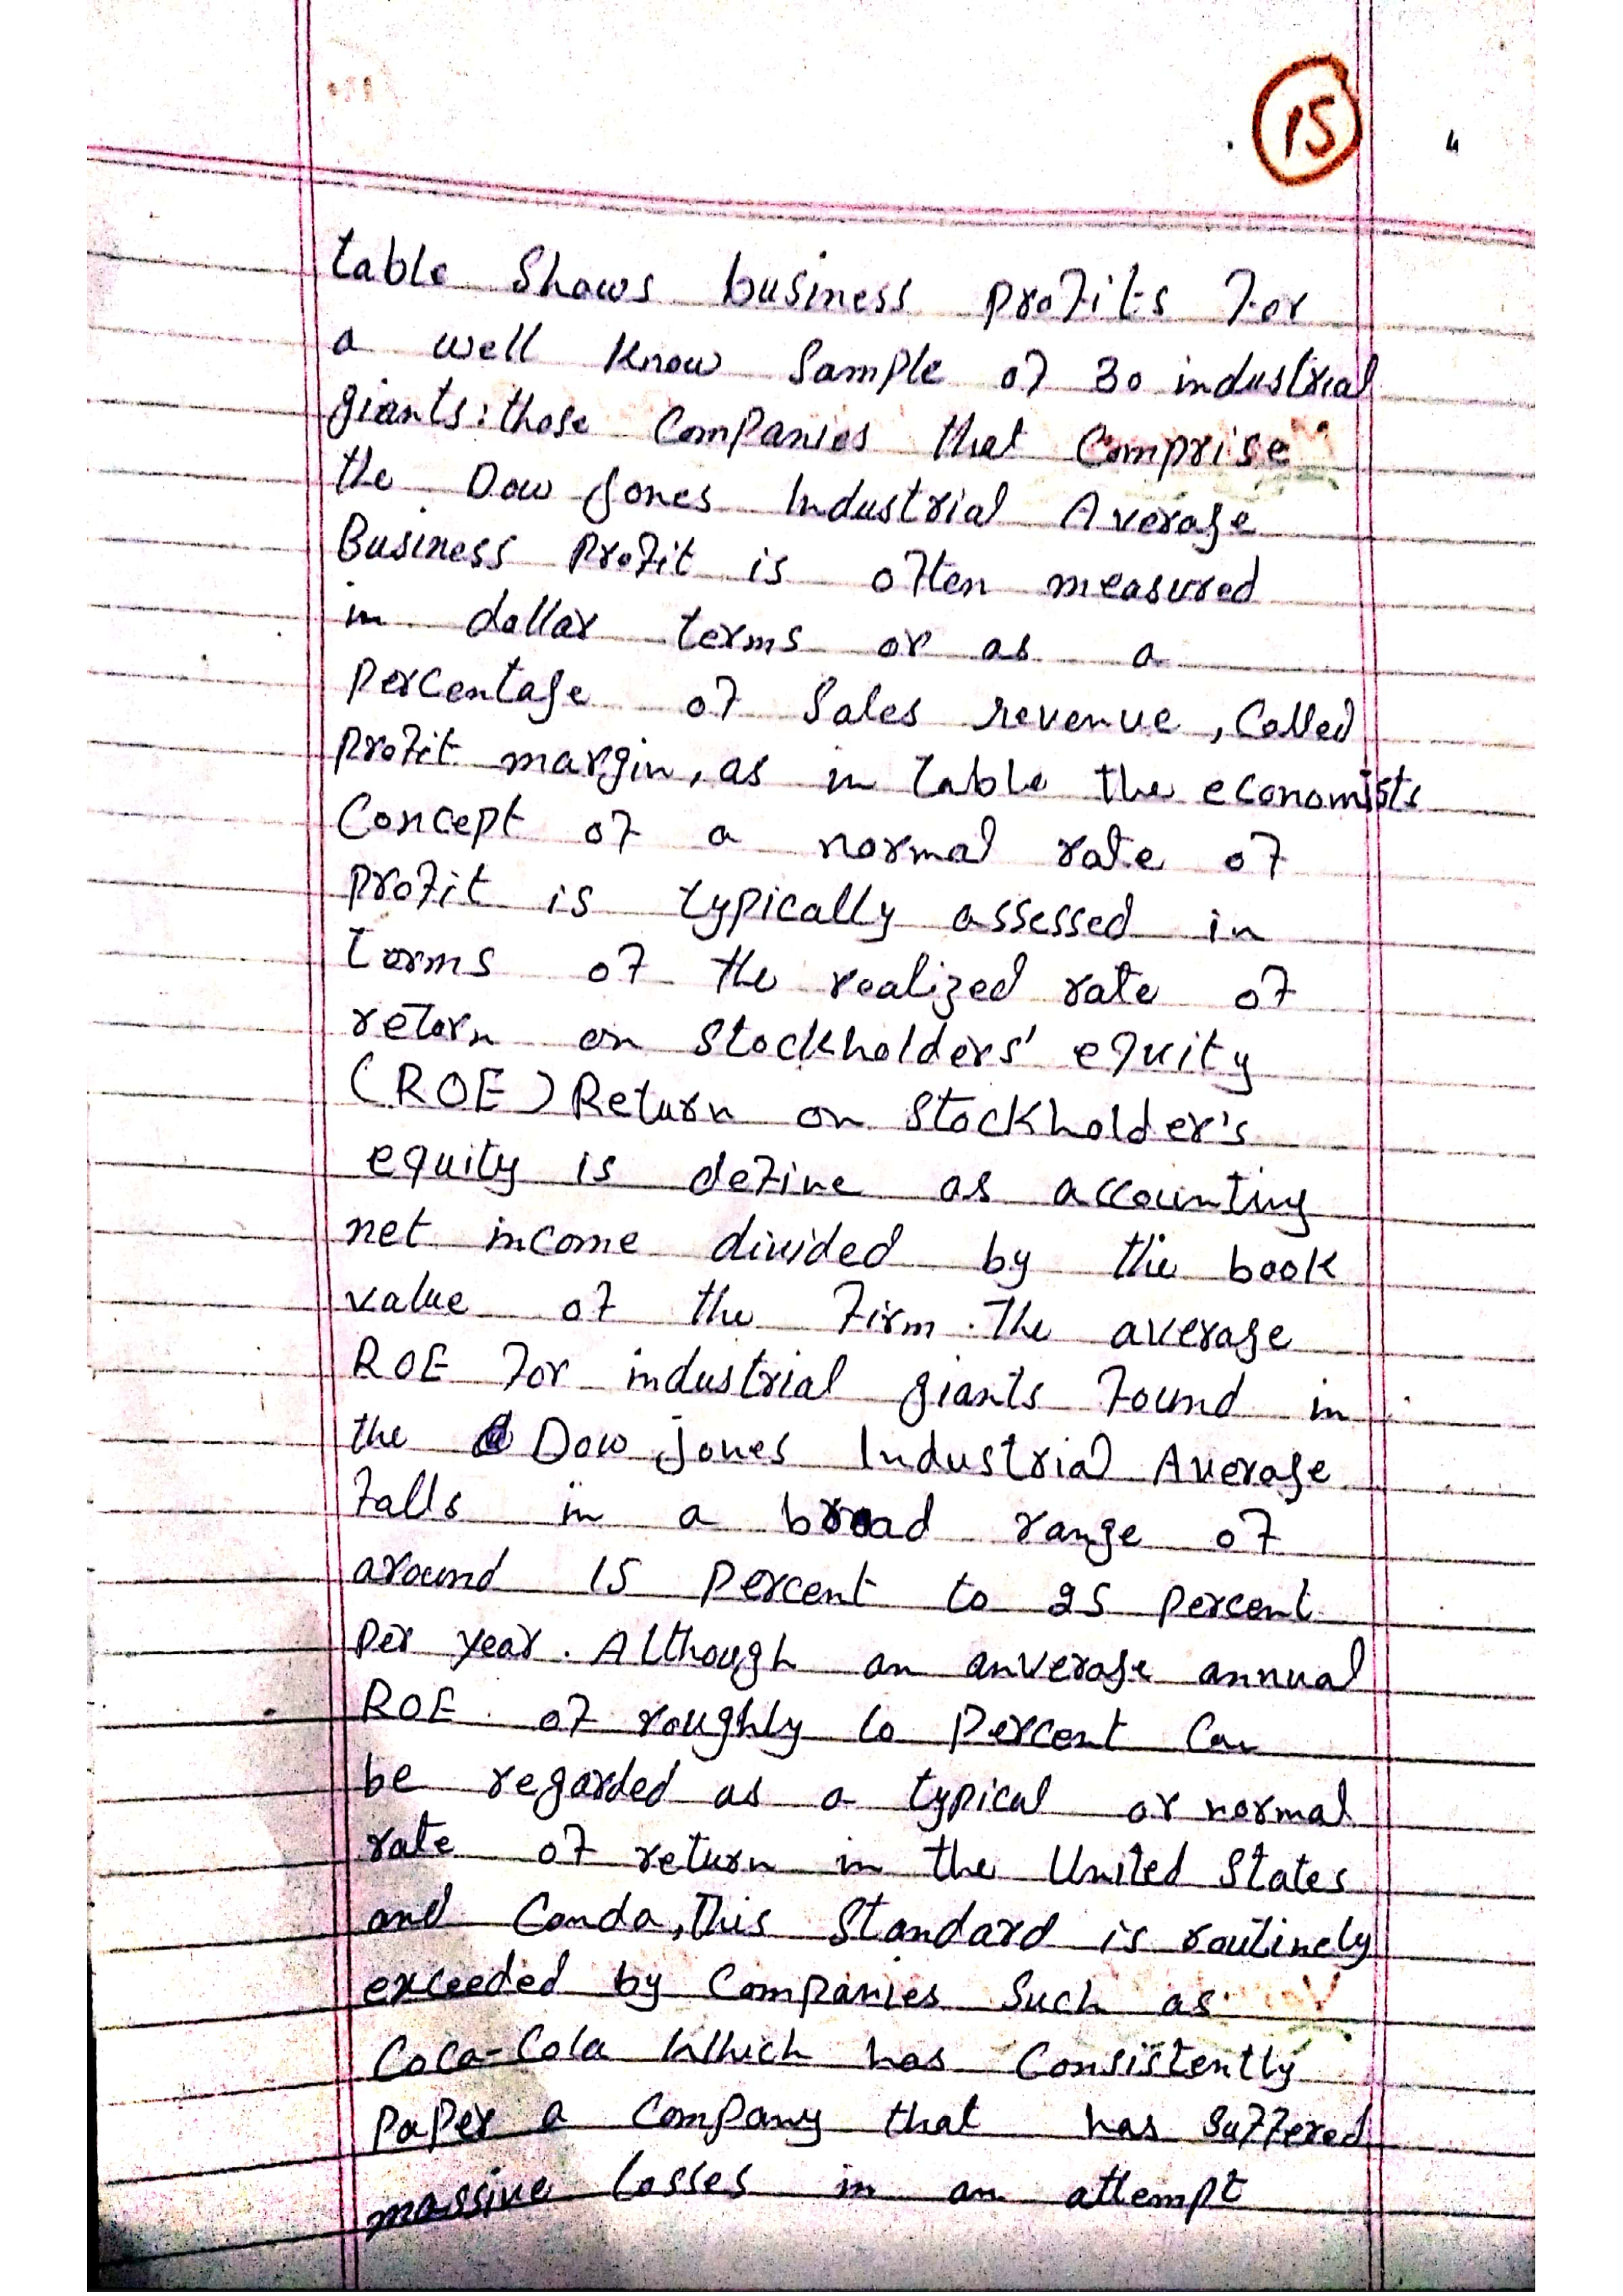 15
table Shows business profits for
a well Know Sample of 30 industrial
giants: those Companies that Comprise
the Dow Jones Industrial Average
Business Profit is often measured
in dollar terms or as a
Percentage of Sales revenue, Called
profit margin, as in table the economists
Concept of a normal rate of
profit is typically assessed in
terms of the realized rate of
return on Stockholders' equity
(ROE) Return on Stockholder's
equity is define as accounting
net income divided by the book
value of the firm. The average
ROE for industrial giants found in
the Dow jones Industrial Average
falls in a broad range of
around 15 percent to 25 percent
per year. Although an anverage annual
ROE of roughly 10 percent Can
be regarded as a typical or normal
rate of return in the United States
and Canda, This Standard is routinely
exceeded by Companies Such as
Coca-Cola Which has Consistently
paper a Company that has Suffered
massive losses in an attempt